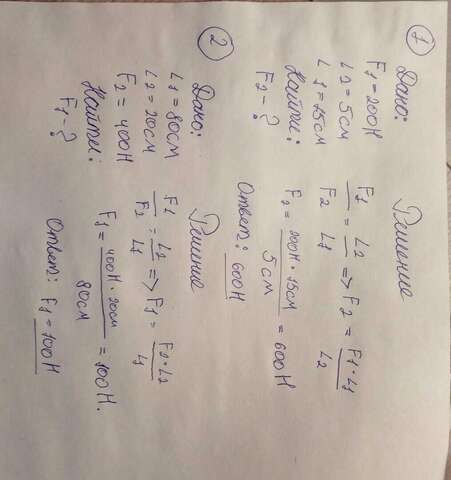 1 Дано:
F1 = 200Н
L2 = 5см
L1 = 15см
Найти:
F2 - ?
Решение
F1/F2 = L2/L1 => F2 = F1·L1/L2
F2 = 200Н·15см/5см = 600Н
Ответ: 600Н
2 Дано:
L1 = 80см
L2 = 20см
F2 = 400Н
Найти:
F1 - ?
Решение
F1/F2 = L2/L1 => F1 = F2·L2/L1
F1 = 400Н·20см/80см = 100Н.
Ответ: F1 = 100Н